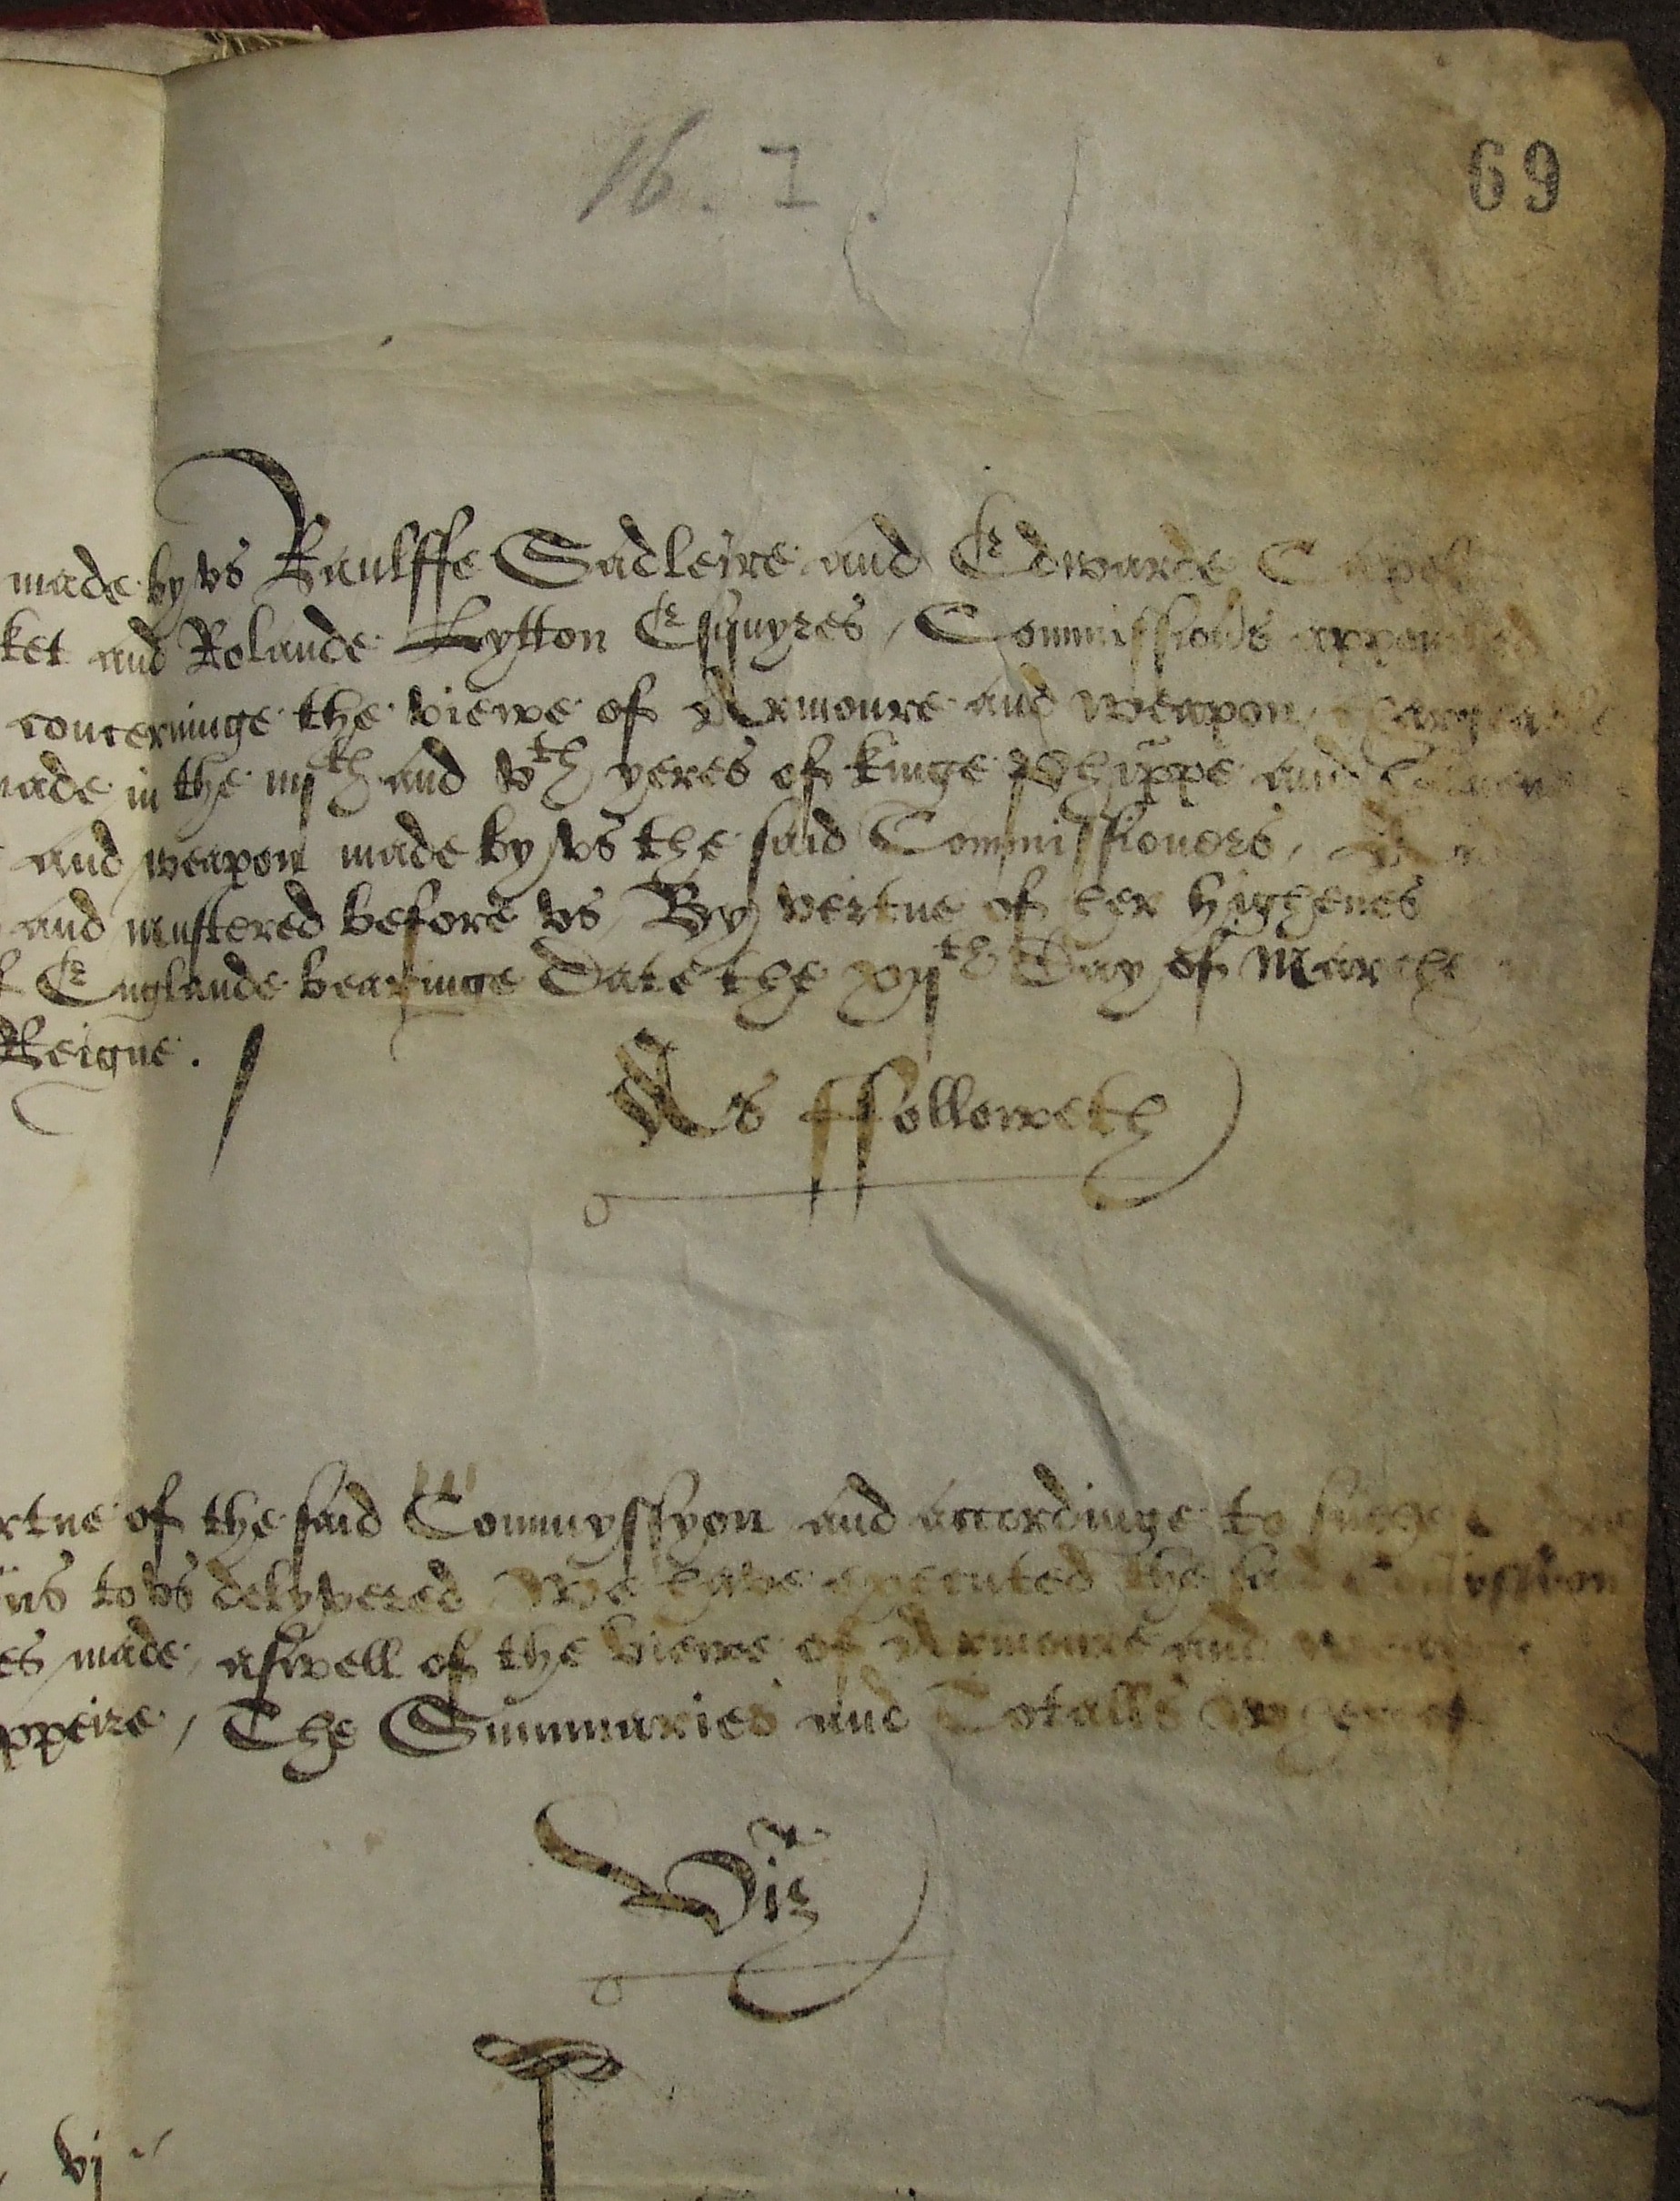 16. I.
69
made by vs Raulffe Sadleire and Edwarde Capell
ket and Rolande Lytton Esquyres / Commissioūs appoynted
concerninge the viewe of Armoure and weapon
made in the iiijth and vth yeres of kinge Phīppe and
and weapon made by vs the said Commissioners,
and mustered before vs, By vertue of her highenes
Englande bearinge Date the xijth Day of Marche
Reigne. /
As ffolloweth
rtue of the said Commyssyon and accordinge to suche
ns to vs delyvered We have executed the said Comyssion
es made, aswell of the viewe of Armoure and
ppeire, The Summaries and Totalls
Viz
vj